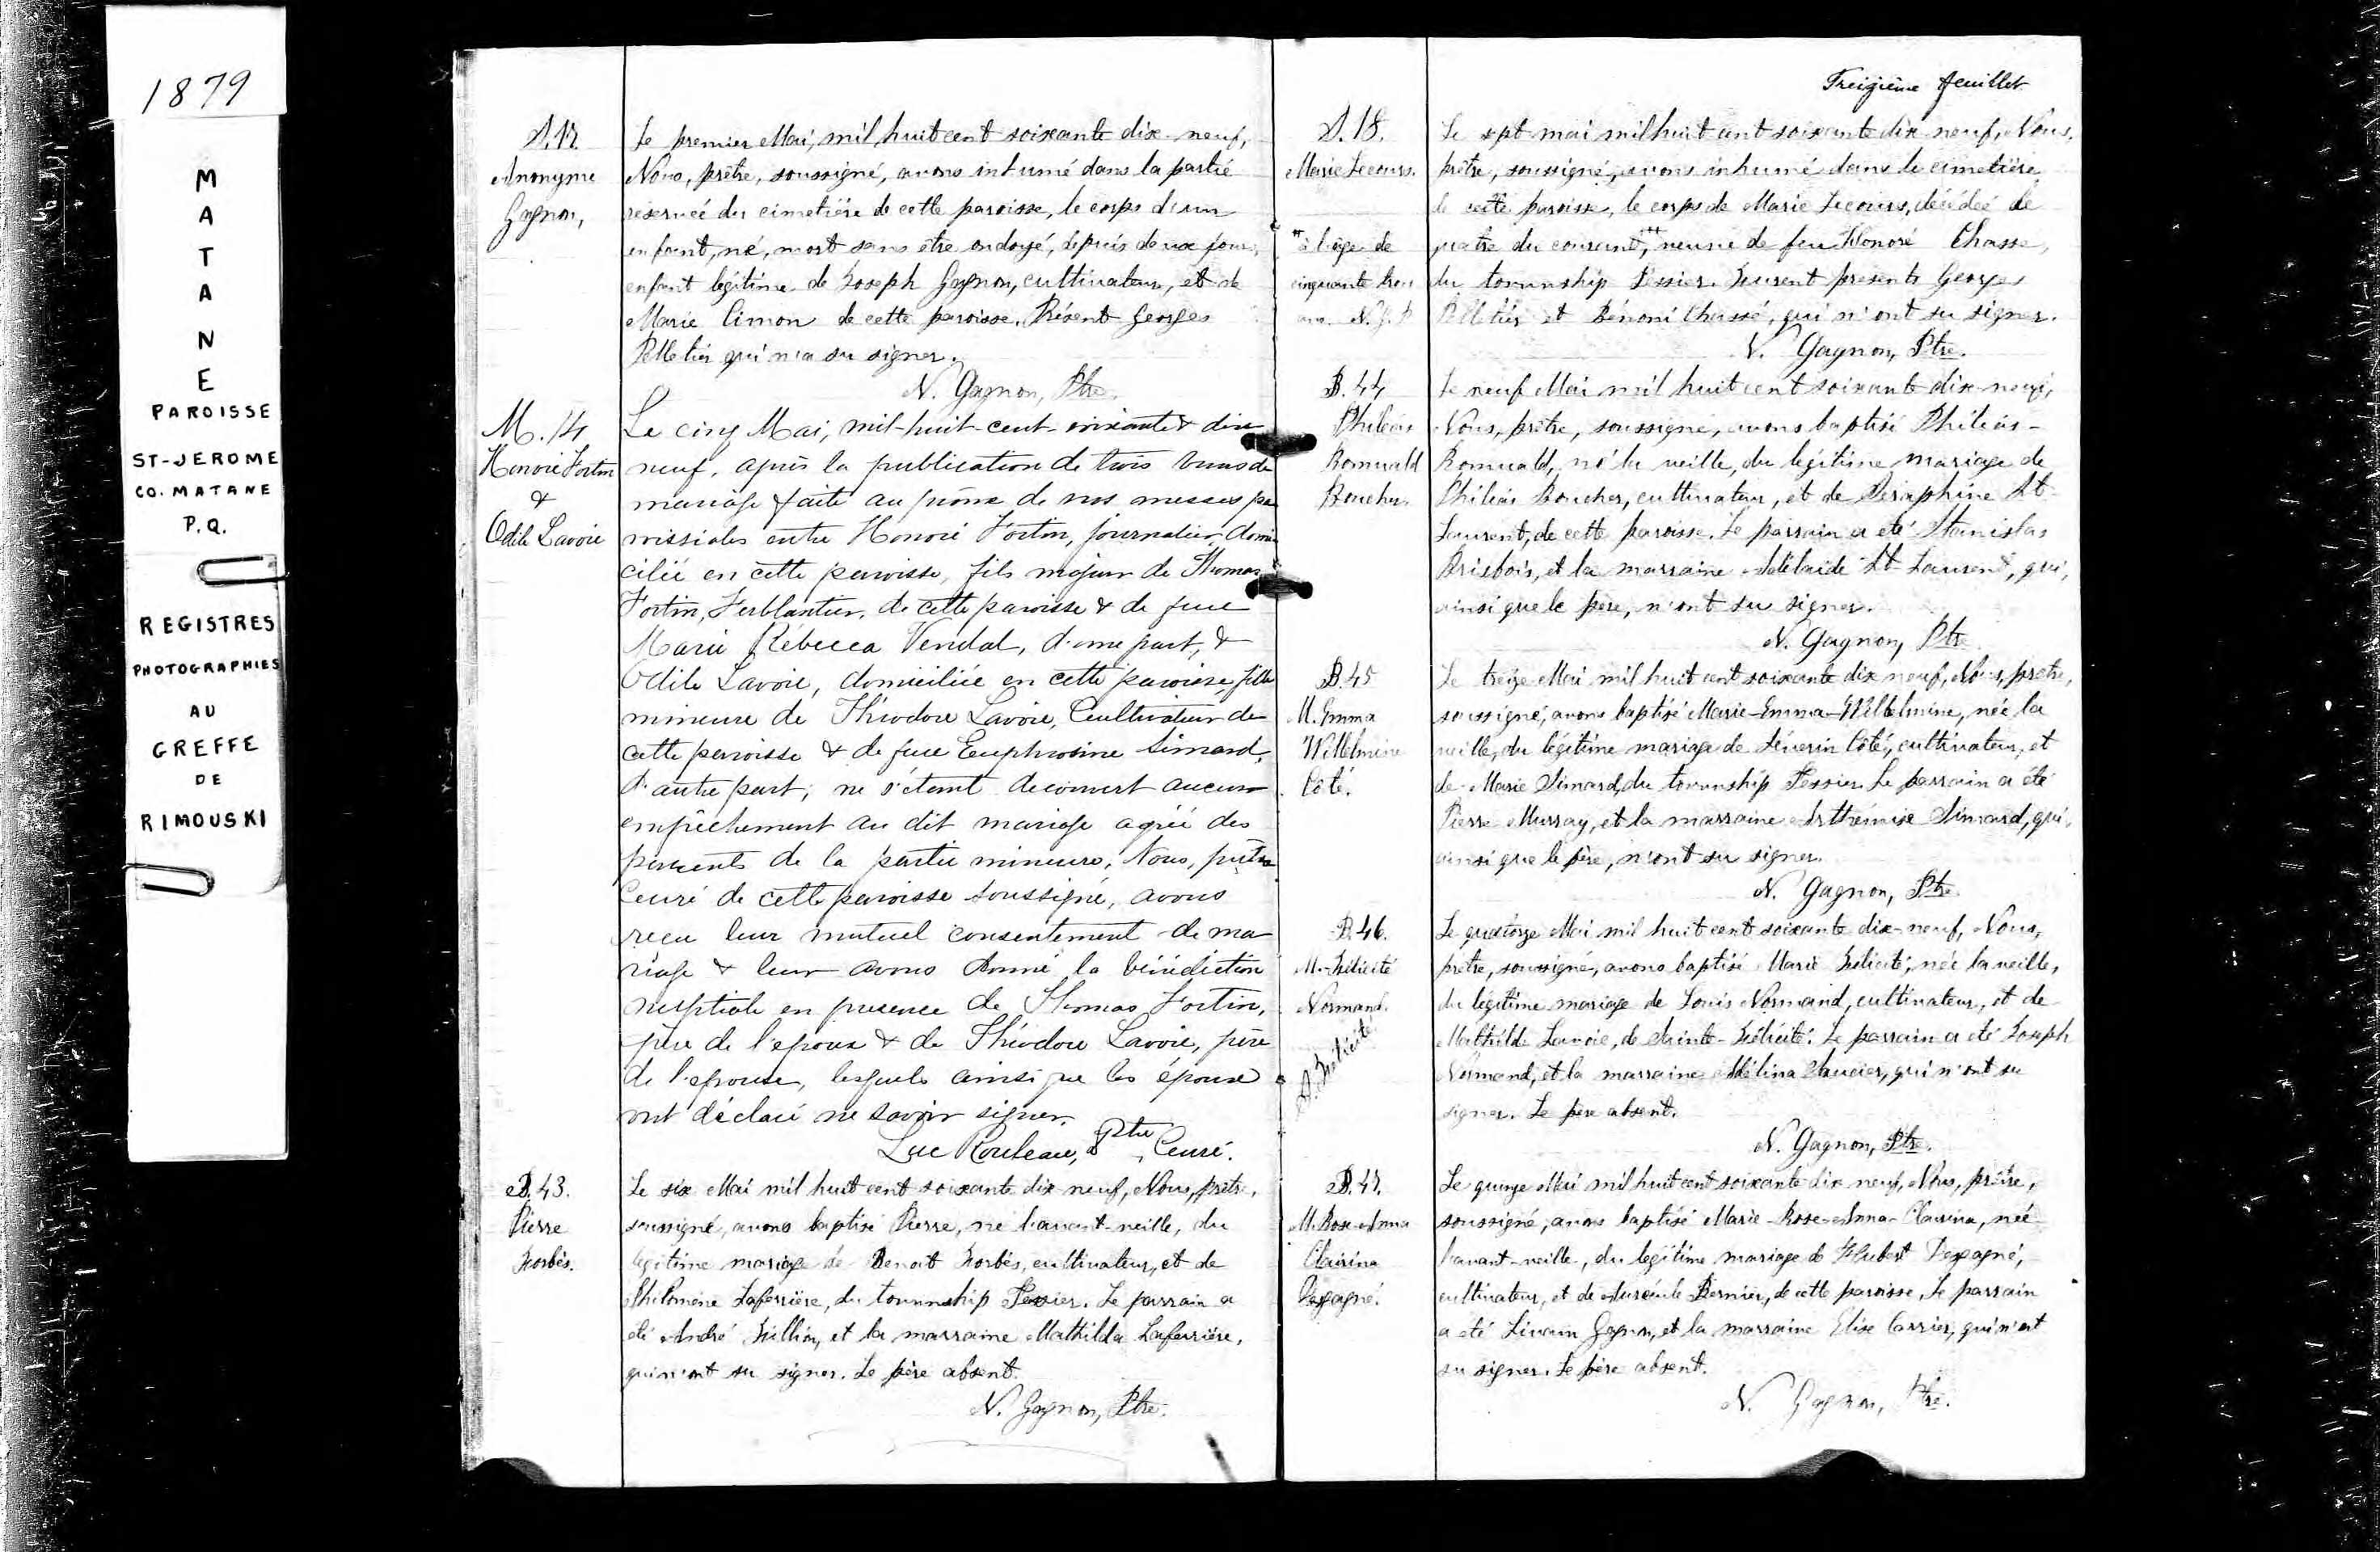 1879
M
A
T
A
N
E
PAROISSE
ST-JEROME
CO. MATANE
P.Q.
REGISTRES
PHOTOGRAPHIES
AU
GREFFE
DE
RIMOUSKI
S. 17.
Anonyme
Gagnon,
Le premier Mai, mil huit cent soixante dix-neuf,
Nous, prêtre, soussigné, avons inhumé dans la partie
réservée du cimetière de cette paroisse, le corps d'un
enfant, né, mort sans être ondoyé, depuis deux jours,
enfant légitime de Joseph Gagnon, cultivateur, et de
Marie Cimon de cette paroisse. Présent Georges
Pelletier qui n'a su signer.
N. Gagnon, Ptre.
M. 14
Honoré Fortin
&
Odile Lavoie
Le cinq Mai, mil-huit-cent-soixante & dix
neuf, après la publication de trois bans de
mariage faite au prône de nos messes pa
roissiales entre Honoré Fortin, journalier, domi
cilié en cette paroisse, fils majeur de Thomas
Fortin, Ferblantier, de cette paroisse & de feue
Marie Rébecca Vendal, d'une part, &
Odile Lavoie, domiciliée en cette paroisse, fille
mineure de Théodore Lavoie, Cultivateur de
cette paroisse & de feue Euphrosine Simard,
d'autre part; ne s'étant découvert aucun
empêchement au dit mariage agréé des
parents de la partie mineure; Nous, prêtre
Curé de cette paroisse soussigné, avons
reçu leur mutuel consentement de ma
riage & leur avons donné la bénédiction
nuptiale en presence de Thomas Fortin,
père de l'epoux & de Théodore Lavoie, père
de l'epouse, lesquels ainsi que les époux
ont déclaré ne savoir signer.
Luc Rouleau, Ptre Curé.
B. 43.
Pierre
Forbés.
Le six Mai mil huit cent soixante dix neuf, Nous, prêtre,
soussigné, avons baptisé Pierre, né l'avant-veille, du
légitime mariage de Benoit Forbés, cultivateur, et de
Philomène Laferrière, du township Tessier. Le parrain a
été André Fillion, et la marraine Mathilda Laferrière,
qui n'ont su signer. Le père absent.
N. Gagnon, Ptre.
Treizième feuillet
S. 18.
Marie Lecours.
Le sept mai mil huit cent soixante dix-neuf, Nous,
prêtre, soussigné, avons inhumé dans le cimetière
de cette paroisse, le corps de Marie Lecours, décédée le
quatre du courant, ** veuve de feu Honoré Chassé,
du township Tessier. Furent présents Georges
Pelletier et Bénoni Chassé, qui n'ont su signer.
N. Gagnon, Ptre.
** à l'âge de
cinquante trois
ans. N. G. P
B. 44
Philéas
Romuald
Boucher.
Le neuf Mai mil huit cent soixante dix-neuf,
Nous, prêtre, soussigné, avons baptisé Philéas-
Romuald, né la veille, du légitime mariage de
Philéas Boucher, cultivateur, et de Séraphine St-
Laurent, de cette paroisse. Le parrain a été Stanislas
Brisbois, et la marraine Adélaïde St-Laurent, qui,
ainsi que le père, n'ont su signer.
N. Gagnon, Ptre
B. 45
M. Emma
Willelmine
Côté.
Le treize Mai mil huit cent soixante dix neuf, Nous, prêtre,
soussigné, avons baptisé Marie-Emma-Willelmine, née la
veille, du légitime mariage de Séverin Côté, cultivateur, et
de Marie Simard, du township Tessier. Le parrain a été
Pierre Murray, et la marraine Arthémise Simard, qui,
ainsi que le père, n'ont su signer.
N. Gagnon, Ptre
B. 46.
M. Félicité
Normand.
S. Félicité
Le quatorze Mai mil huit cent soixante dix-neuf, Nous,
prêtre, soussigné, avons baptisé Marie Félicité, née la veille,
du légitime mariage de Louis Normand, cultivateur, et de
Mathilde Lavoie, de Sainte-Félicité. Le parrain a été Joseph
Normand, et la marraine Adélina Saucier, qui n'ont su
signer. Le père absent.
N. Gagnon, Ptre.
B. 47.
M. Rose-Anna
Clairina
Depagné.
Le quinze Mai mil huit cent soixante dix neuf, Nous, prêtre,
soussigné, avons baptisé Marie-Rose-Anna-Claurina, née
l'avant-veille, du légitime mariage de Hubert Depagné,
cultivateur, et de Bernier, de cette paroisse. Le parrain
a été Gagnon, et la marraine Elise Carrier, qui n'ont
su signer. Le père absent.
N. Gagnon, Ptre.